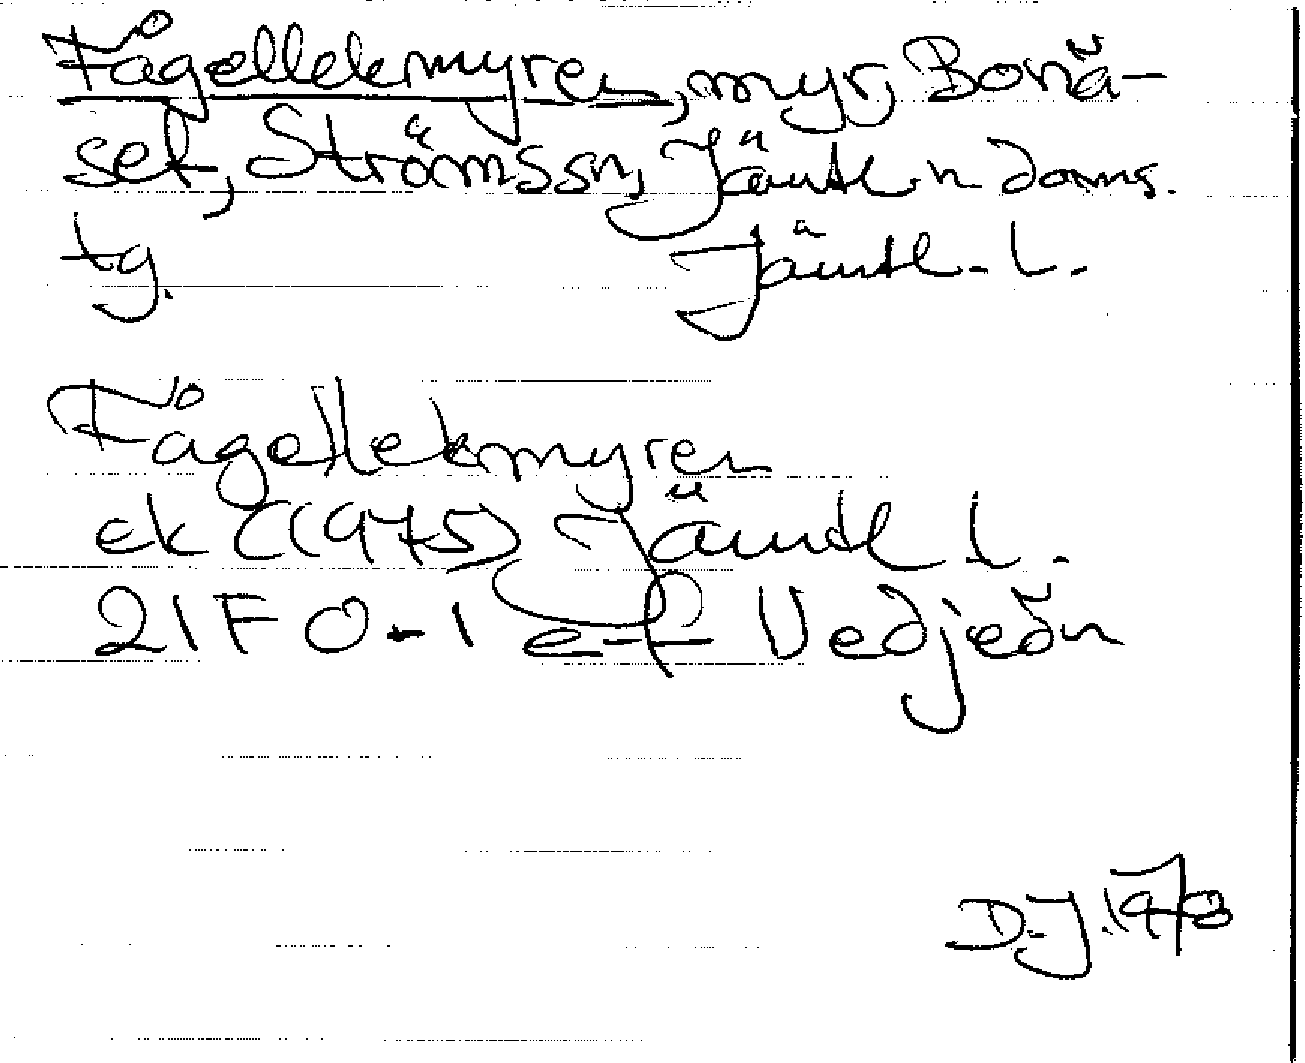 Fågellekmyren, myr, Bonä-
set, Ströms sn, Jämtl. n doms.
tg. Jämtl. l.
Fågellekmyren
ek (1975) Jämtl l.
21F 0-1 e-f Vedjeön
D.J. 1978